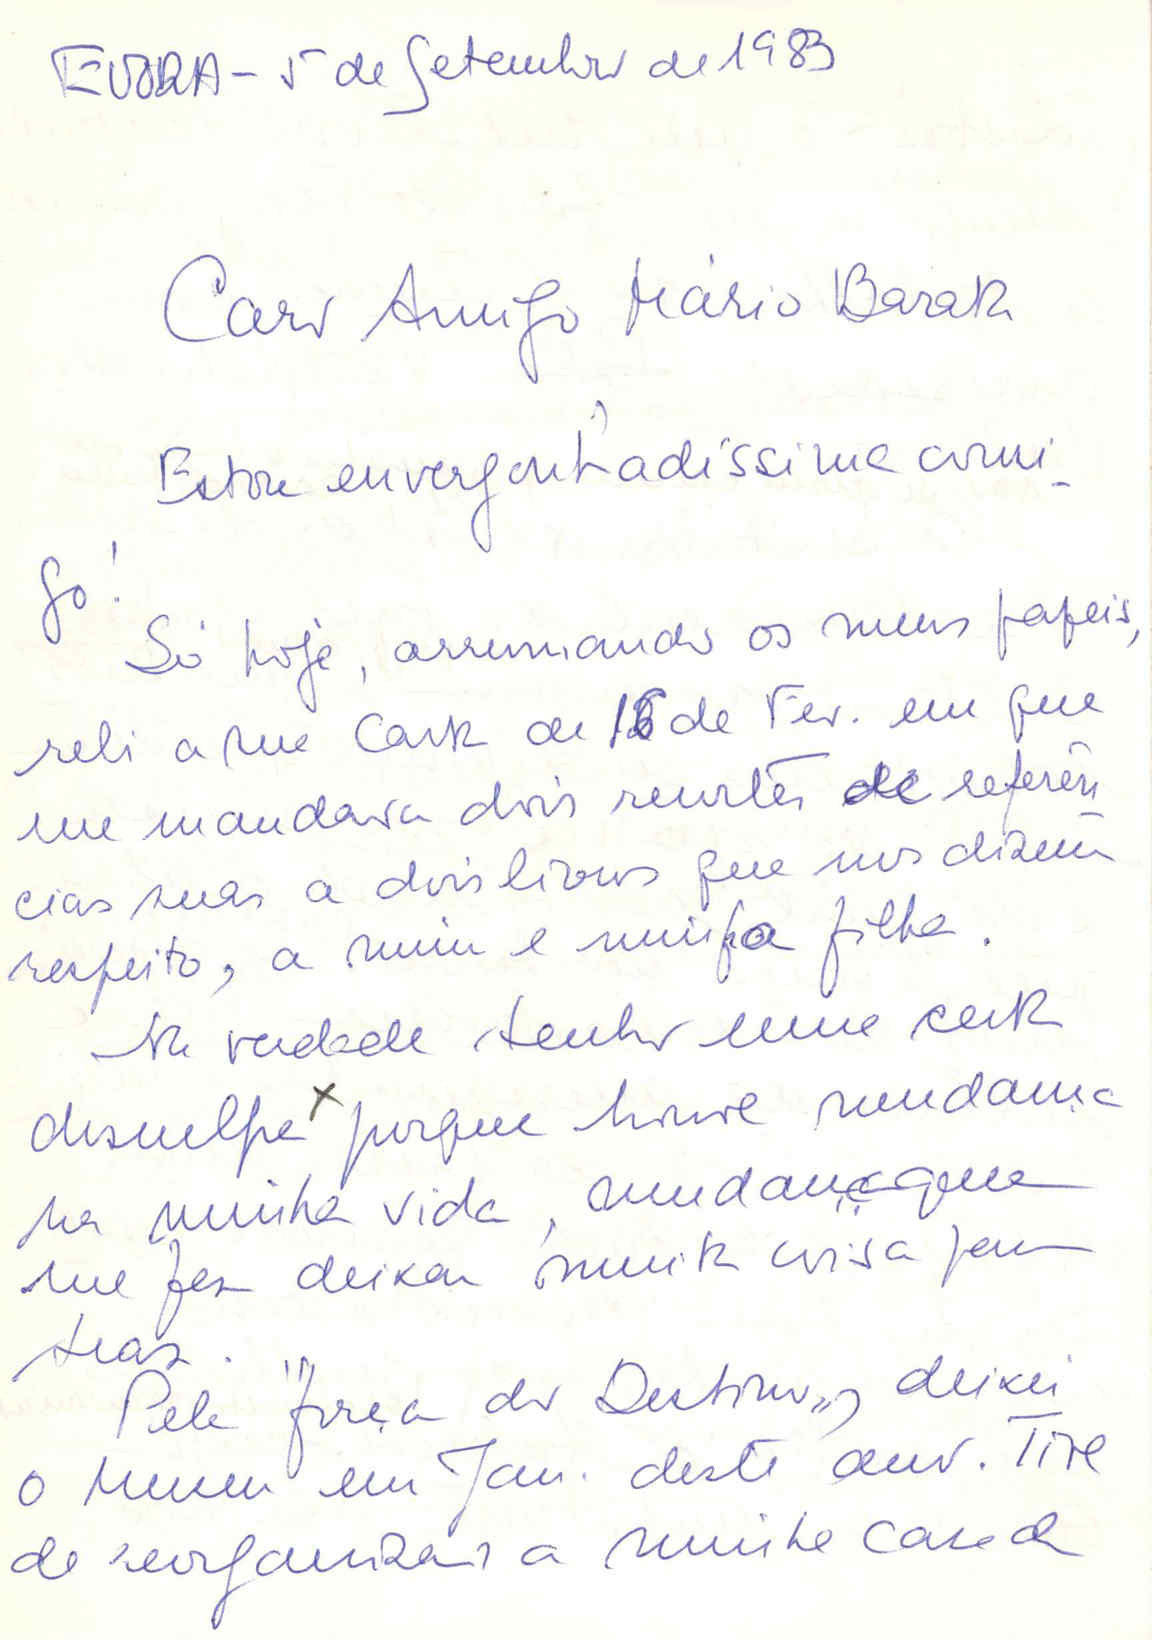 EVORA - 5 de Setembro de 1983
Caro Amigo Mário Barata
Estou envergonhadissima comi-
go!
Só hoje, arrumando os meus papeis,
reli a sua Carta de 16 de Fev. em que
me mandava dois recortes de referên
cias suas a dois livros que nos dizem
respeito, a mim e minha filha.
Na verdade tenho uma certa
desculpa x porque houve mudança
na minha vida, mudança que
me fez deixar muita coisa para
tras.
Pela "força do Destino", deixei
o Museu em Jan. deste ano. Tive
de reorganizar a minha casa de